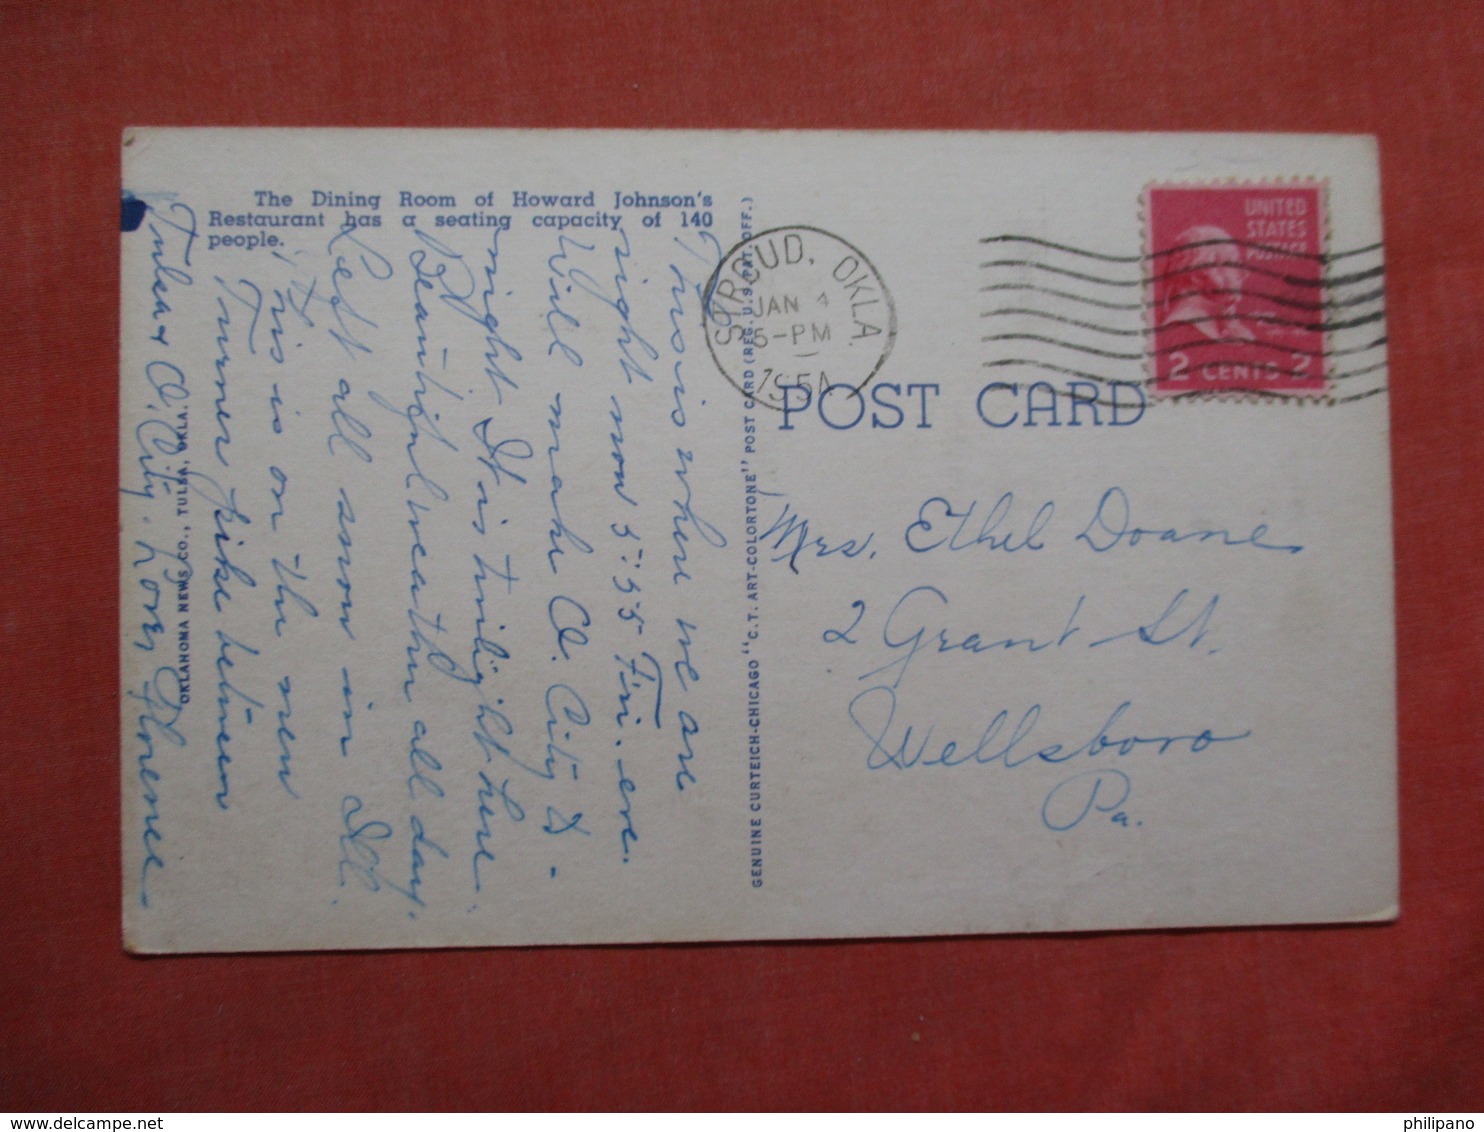 The Dining Room of Howard Johnson's
Restaurant has a seating capacity of 140
people.
OKLAHOMA NEWS CO., TULSA, OKLA.
This is where we are
right now 5:55 Fri. eve.
Will make O. City to-
night It is twilight here.
Beautiful weather all day.
Left all snow in Ill.
This is on the new
Turner pike between
Tulsa & O. City. Love, Florence
GENUINE CURTEICH-CHICAGO "C.T. ART-COLORTONE" POST CARD (REG. U.S. PAT. OFF.)
STROUD, OKLA.
JAN
5-PM
POST CARD
UNITED
STATES
POSTAGE
2 CENTS 2
Mrs. Ethel Doane
2 Grant St.
Wellsboro
Pa.
philipano